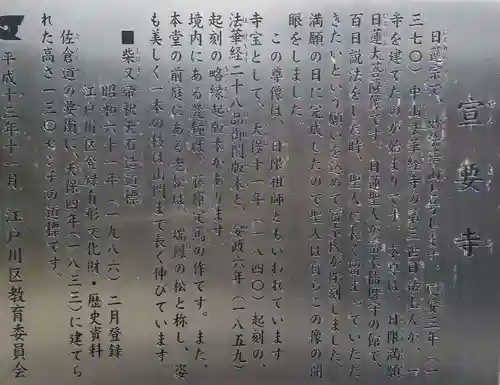 宣要寺
日蓮宗で、
三七〇）中山法華経寺の第三世日祐上人が、
寺を建てたのが始まりです。本尊は、日限満願
日蓮大菩薩像です。日蓮聖人が富木播磨守の館で、
百日説法をした時、聖人に長く留まっていただ
きたいという願いを込めて富木氏が彫刻しました。
満願の日に完成したので聖人は自らこの像の開
眼をしました。
この尊像は、日限祖師ともいわれています。
寺宝として、天保十一年（一八四〇）起刻の、
法華経二十八品御門版木と、安政六年（一八五九）
起刻の略縁起版木があります。
境内にある梵鐘は、藤原定馬の作です。また、
本堂の前庭にある老松は、瑞鳳の松と称し、姿
も美しく一本の枝は山門まで長く伸びています。
■柴又帝釈天石造道標
昭和六十一年（一九八六）二月登録
江戸川区登録有形文化財・歴史資料
佐倉道の要衝に、天保四年（一八三三）に建てら
れた高さ一三〇センチの道標です。
平成十三年十一月 江戸川区教育委員会